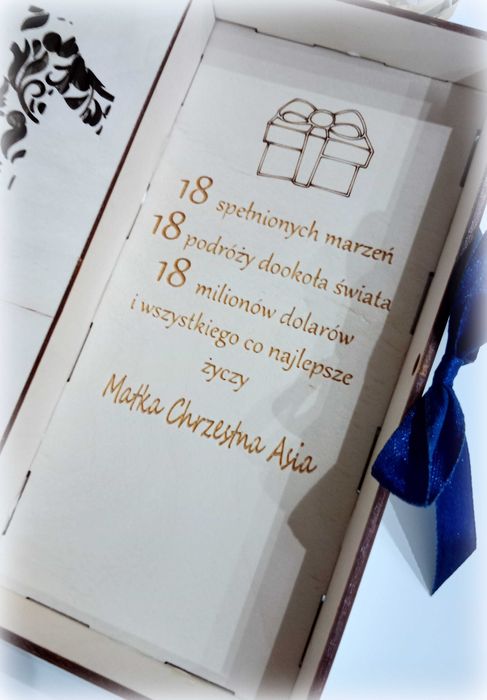 18 spełnionych marzeń
18 podróży dookoła świata
18 milionów dolarów
i wszystkiego co najlepsze
życzy
Matka Chrzestna Asia